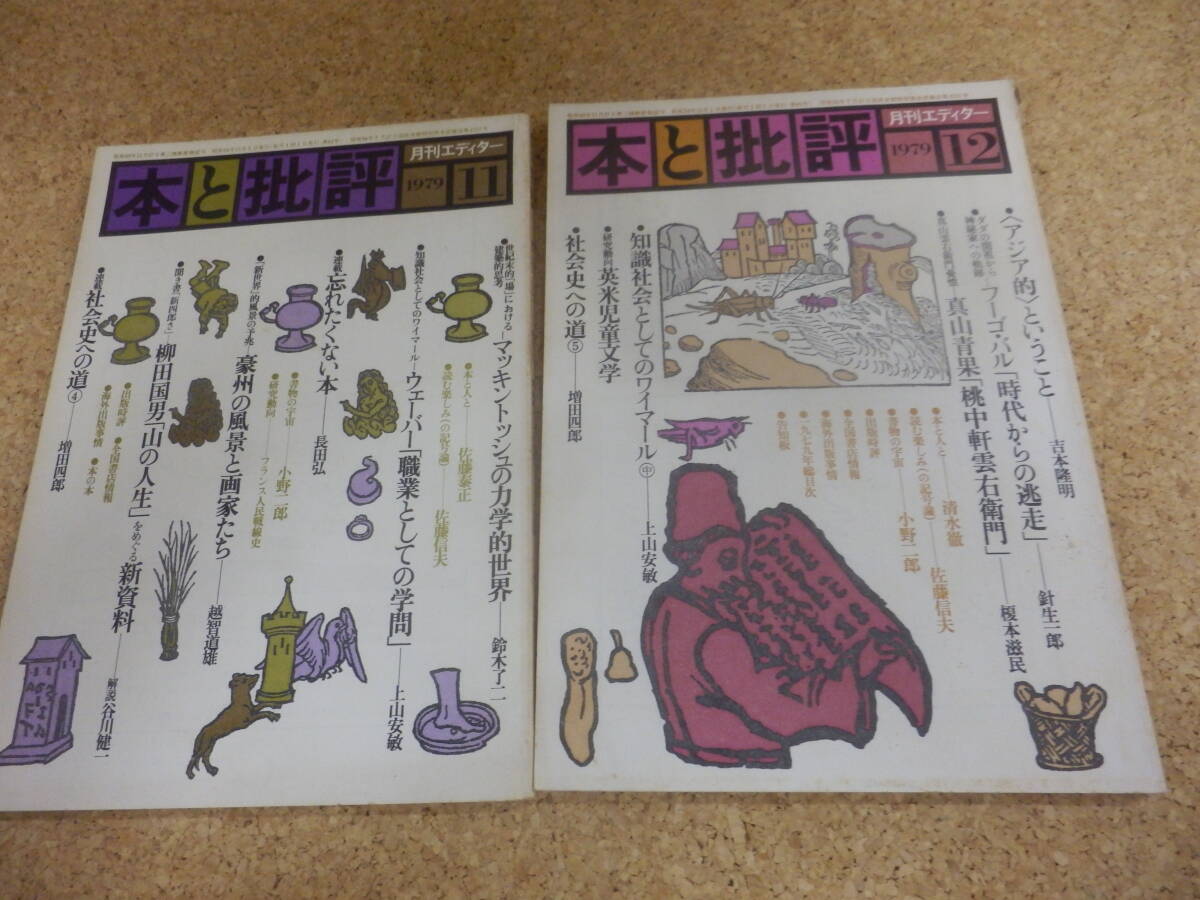 本と批評
月刊エディター
1979
11
●世紀末的「場」における
建築的思考
―マッキントッシュの力学的世界――鈴木了二
●本と人と――佐藤泰正
●読む楽しみ(への記号論)――佐藤信夫
●知識社会としてのワイマール―ウェーバー「職業としての学問」――上山安敏
●連載 忘れたくない本――長田弘
●書物の宇宙――小野二郎
●研究動向――フランス人民戦線史
●「新世界」的風景の予兆―豪州の風景と画家たち――越智道雄
●聞き書「新四郎さ」―柳田国男「山の人生」をめぐる新資料――解説 谷川健一
●出版時評 ●全国書店情報
●海外出版事情 ●本の本
●連載 社会史への道④――増田四郎
本と批評
月刊エディター
1979
12
●〈アジア的〉ということ――吉本隆明
●ダダの創始から
神秘家への転機
―フーゴ・バル「時代からの逃走」――針生一郎
真山青果「桃中軒雲右衛門」――榎本滋民
●本と人と――清水徹
●読む楽しみ(への記号論)――佐藤信夫
●書物の宇宙――小野二郎
●出版時評
●全国書店情報
●海外出版事情
●一九七九年・総目次
●告知板
●知識社会としてのワイマール㊥――上山安敏
●研究動向 英米児童文学
●社会史への道⑤――増田四郎